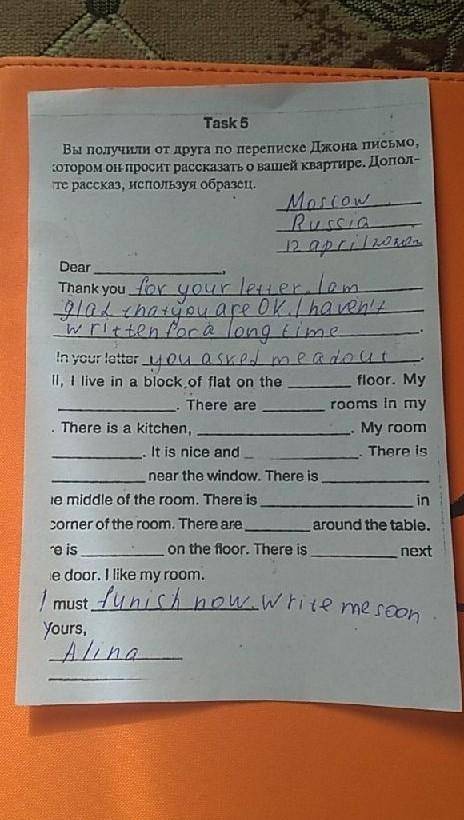 Task 5
Вы получили от друга по переписке Джона письмо,
котором он просит рассказать о вашей квартире. Допол-
те рассказ, используя образец.
Moscow
Russia
12 april
Dear ____________,
Thank you for your letter. I am
glad that you are OK. I haven't
written for a long time.
In your letter you asked me adout.
ll, I live in a block of flat on the ________ floor. My
________________. There are ________ rooms in my
. There is a kitchen, ____________________. My room
____________. It is nice and ______________. There is
____________ near the window. There is ____________
e middle of the room. There is ____________________ in
corner of the room. There are ________ around the table.
re is __________ on the floor. There is __________ next
e door. I like my room.
I must funish now. Write me soon.
Yours,
Alina